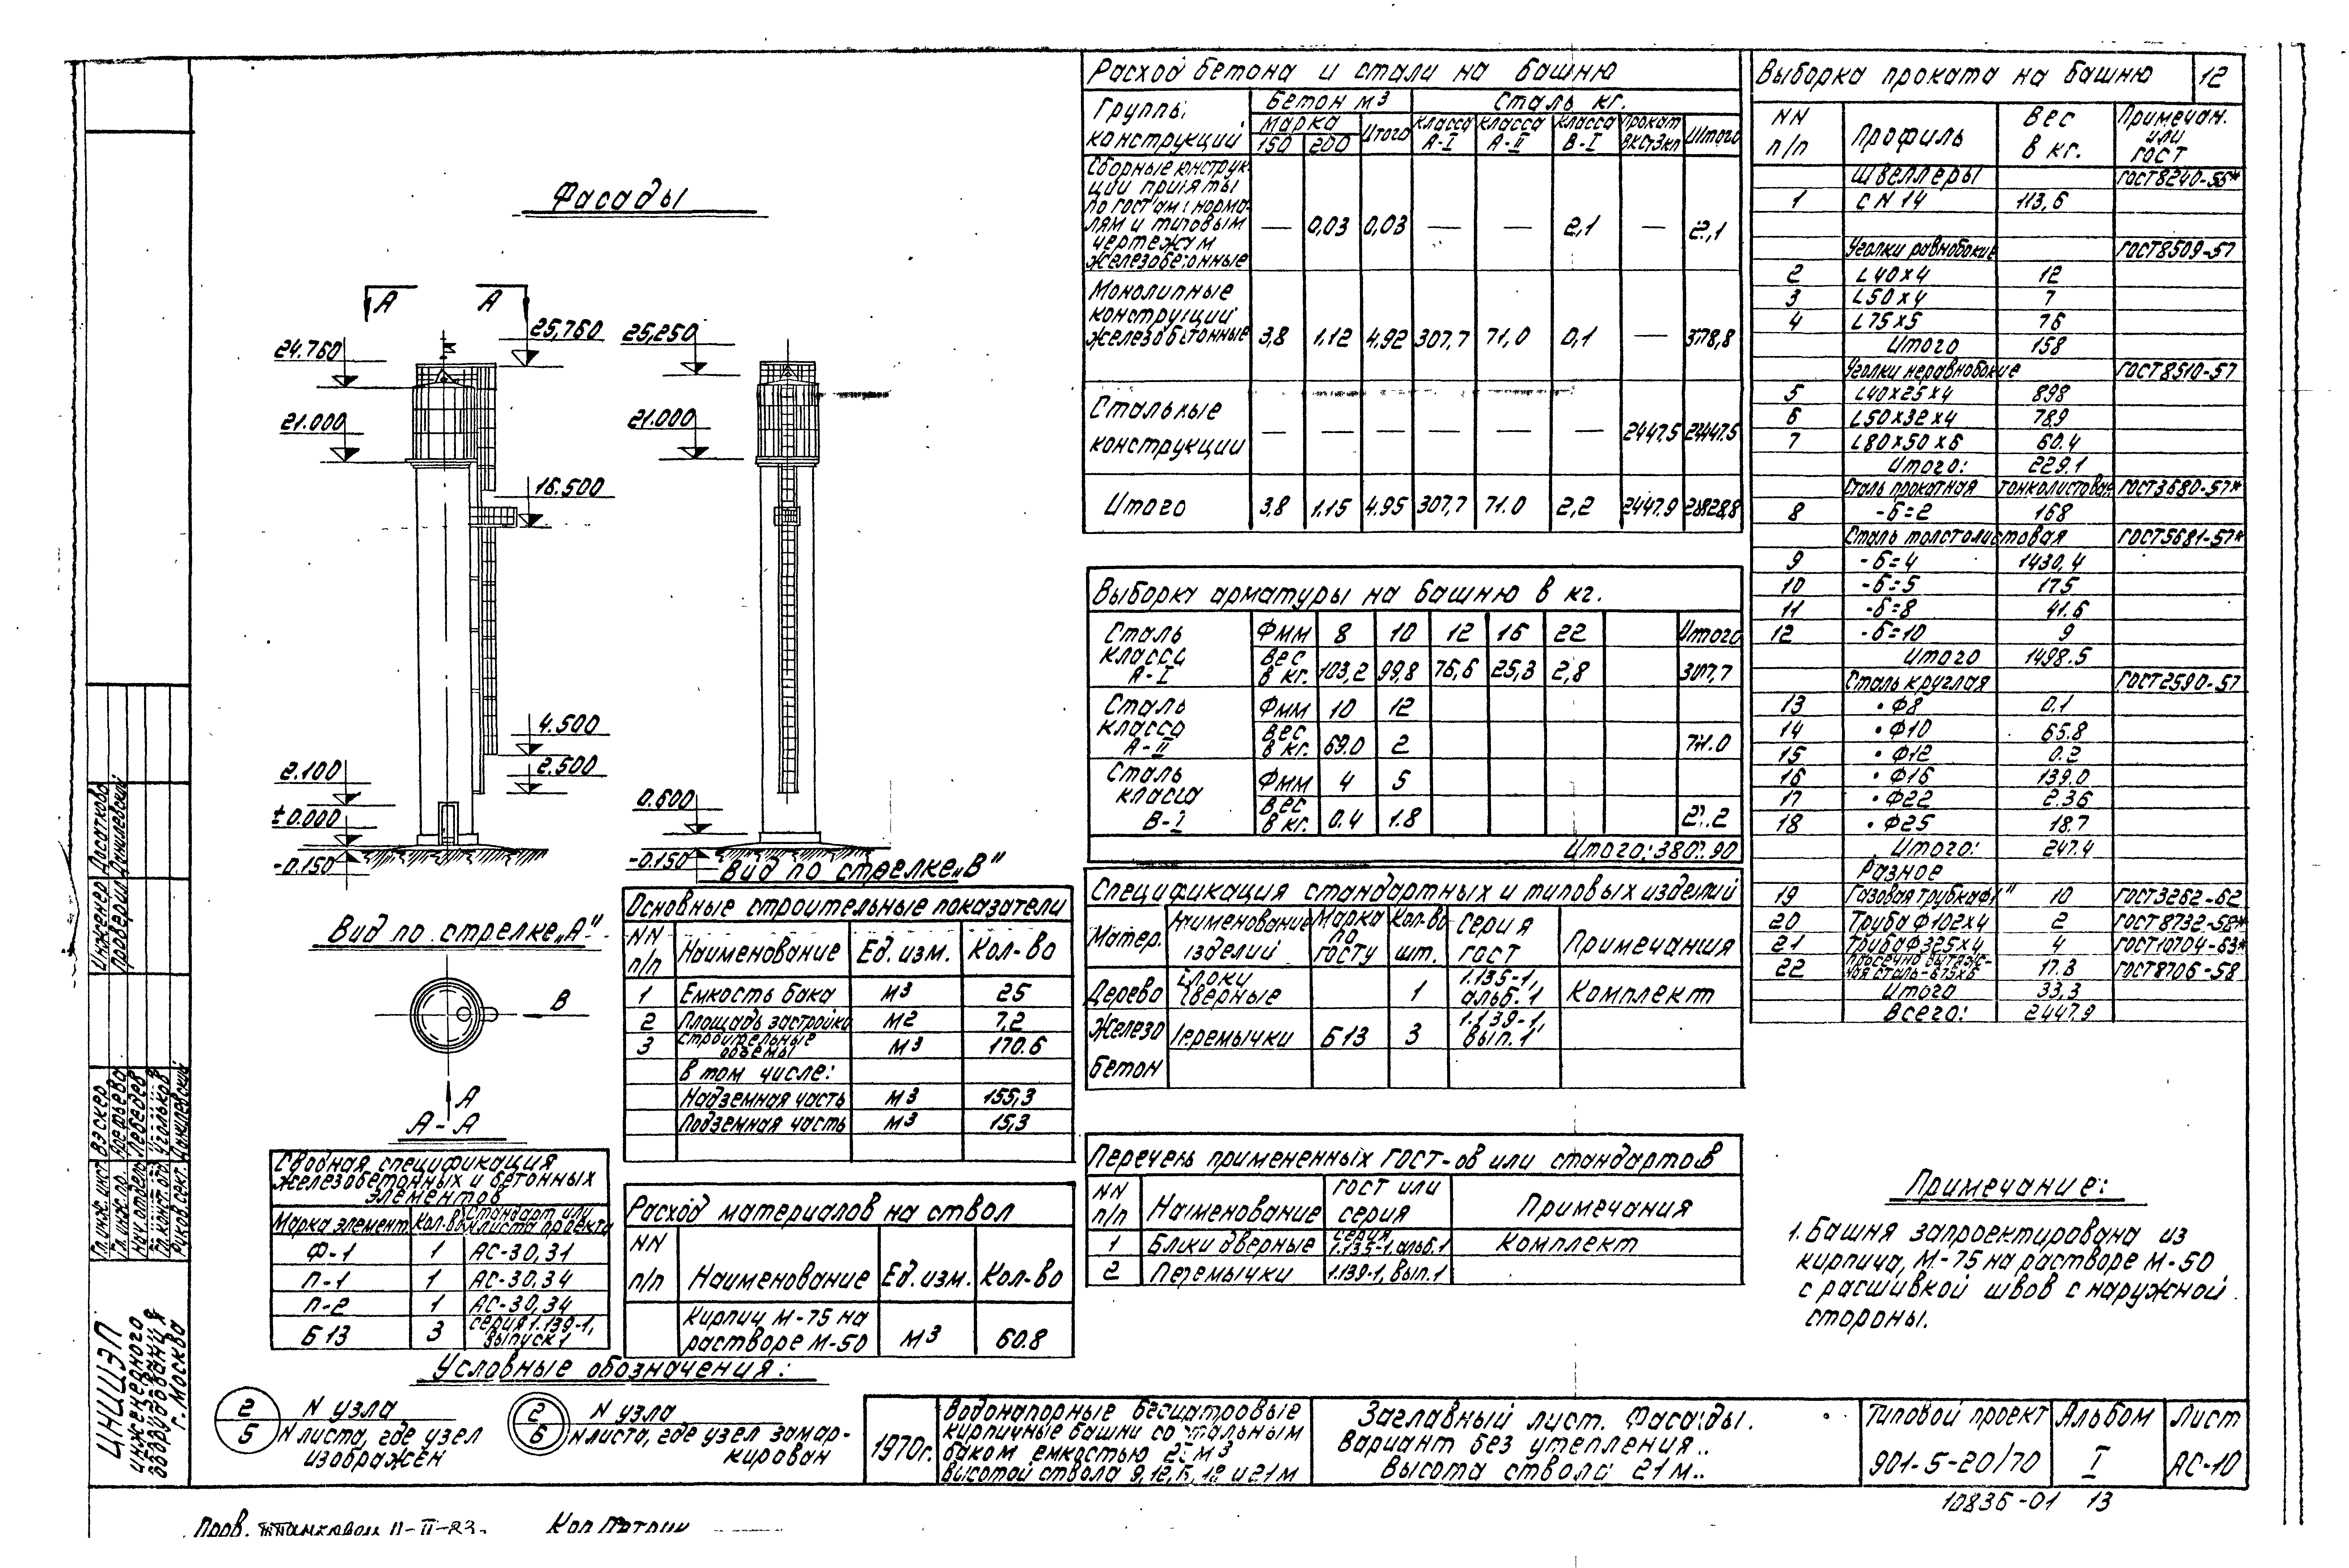 Фасады
А А
24.760
25,760
21.000
16.500
4.500
2.500
2.100
±0.000
-0.150
25,250
21.000
0.600
-0.150
Вид по стрелке „В"
Вид по стрелке „А"
В
А
А-А
Сводная спецификация
железобетонных и бетонных
элементов
Марка элемент. Кол-во Стандарт или №листа проекта
Ф-1 1 АС-30,31
П-1 1 АС-30,34
П-2 1 АС-30,34
Б13 3 серия 1.139-1, выпуск 1
Основные строительные показатели
NN п/п Наименование Ед. изм. Кол-во
1 Емкость бака м3 25
2 Площадь застройки м2 7,2
3 Строительные объемы м3 170.6
в том числе:
Надземная часть м3 155,3
Подземная часть м3 15,3
Расход материалов на ствол
NN п/п Наименование Ед. изм. Кол-во
Кирпич М-75 на
растворе М-50 м3 60.8
Условные обозначения:
2 N узла
5 N листа, где узел
изображен
2 N узла
6 N листа, где узел замар-
кирован
Расход бетона и стали на башню
Группы конструкций Бетон м3 Сталь кг.
Марка 150 200 Итого класса А-I класса А-II класса В-I прокат ВКСт3кп Итого
Сборные конструк-
ции приняты
по гост'ам норма-
лям и типовым
чертежам
железобетонные — 0,03 0,03 — — 2,1 — 2,1
Монолитные
конструкции
железобетонные 3,8 1.12 4.92 307,7 71,0 0,1 — 378,8
Стальные
конструкции — — — — — — 2447.5 2447.5
Итого 3,8 1.15 4.95 307,7 71.0 2,2 2447.9 2828,8
Выборка арматуры на башню в кг.
Сталь класса А-I Фмм 8 10 12 16 22 Итого
вес в кг. 103,2 99,8 76,6 25,3 2,8 307,7
Сталь класса А-II Фмм 10 12
вес в кг. 69.0 2 71.0
Сталь класса В-I Фмм 4 5
вес в кг. 0.4 1.8 2.2
Итого: 380.90
Спецификация стандартных и типовых изделий
Матер. Наименование изделий Марка по госту Кол-во шт. Серия гост Примечания
Дерево Блоки дверные 1 1.135-1, альб. 1 Комплект
Железо бетон Перемычки Б13 3 1.139-1, вып. 1
Перечень примененных гост-ов или стандартов
NN п/п Наименование гост или серия Примечания
1 Блоки дверные серия 1.135-1, альб.1 Комплект
2 Перемычки 1.139-1, вып.1
Выборка проката на башню 12
NN п/п Профиль Вес в кг. Примечан. или гост
Швеллеры ГОСТ8240-56*
1 С N 14 113,6
Уголки равнобокие ГОСТ8509-57
2 L40×4 12
3 L50×4 7
4 L75×5 76
Итого 158
Уголки неравнобокие ГОСТ8510-57
5 L40×25×4 898
6 L50×32×4 789
7 L80×50×6 60.4
Итого: 229.1
Сталь прокатная тонколистовая ГОСТ3680-57*
8 -б=2 168
Сталь толстолистовая ГОСТ5681-57*
9 -б=4 1430,4
10 -б=5 17.5
11 -б=8 41.6
12 -б=10 9
Итого 1498.5
Сталь круглая ГОСТ2590-57
13 • Ф8 0.1
14 • Ф10 65.8
15 • Ф12 0.2
16 • Ф16 139.0
17 • Ф22 2.36
18 • Ф25 18.7
Итого: 247.4
Разное
19 Газовая трубка ф1" 10 ГОСТ3262-62
20 Труба Ф102×4 2 ГОСТ8732-58*
21 Труба Ф325×4 4 ГОСТ10704-63*
22 Просечно вытяж-
ная сталь 17.3 ГОСТ8706-58
Итого 33,3
Всего: 2447.9
Примечание:
1. Башня запроектирована из
кирпича, М-75 на растворе М-50
с расшивкой швов с наружной
стороны.
1970г.
Водонапорные бесшатровые
кирпичные башни со стальным
баком емкостью 25 м3
высотой ствола 9,12,15,18 и 21м
Заглавный лист. Фасады.
Вариант без утепления.
Высота ствола 21м.
Типовой проект
901-5-20/70
Альбом
I
Лист
АС-10
10836-01 13
ЦНИИЭП
инженерного
оборудования
г. Москва
Инженер Досаткова
Проверил Данилевский
Гл. инж. инст.
Гл. инж. пр.
Нач. отдела Лебедев
Гл. конст. отд. Угольков
Руков. сект. Данилевский